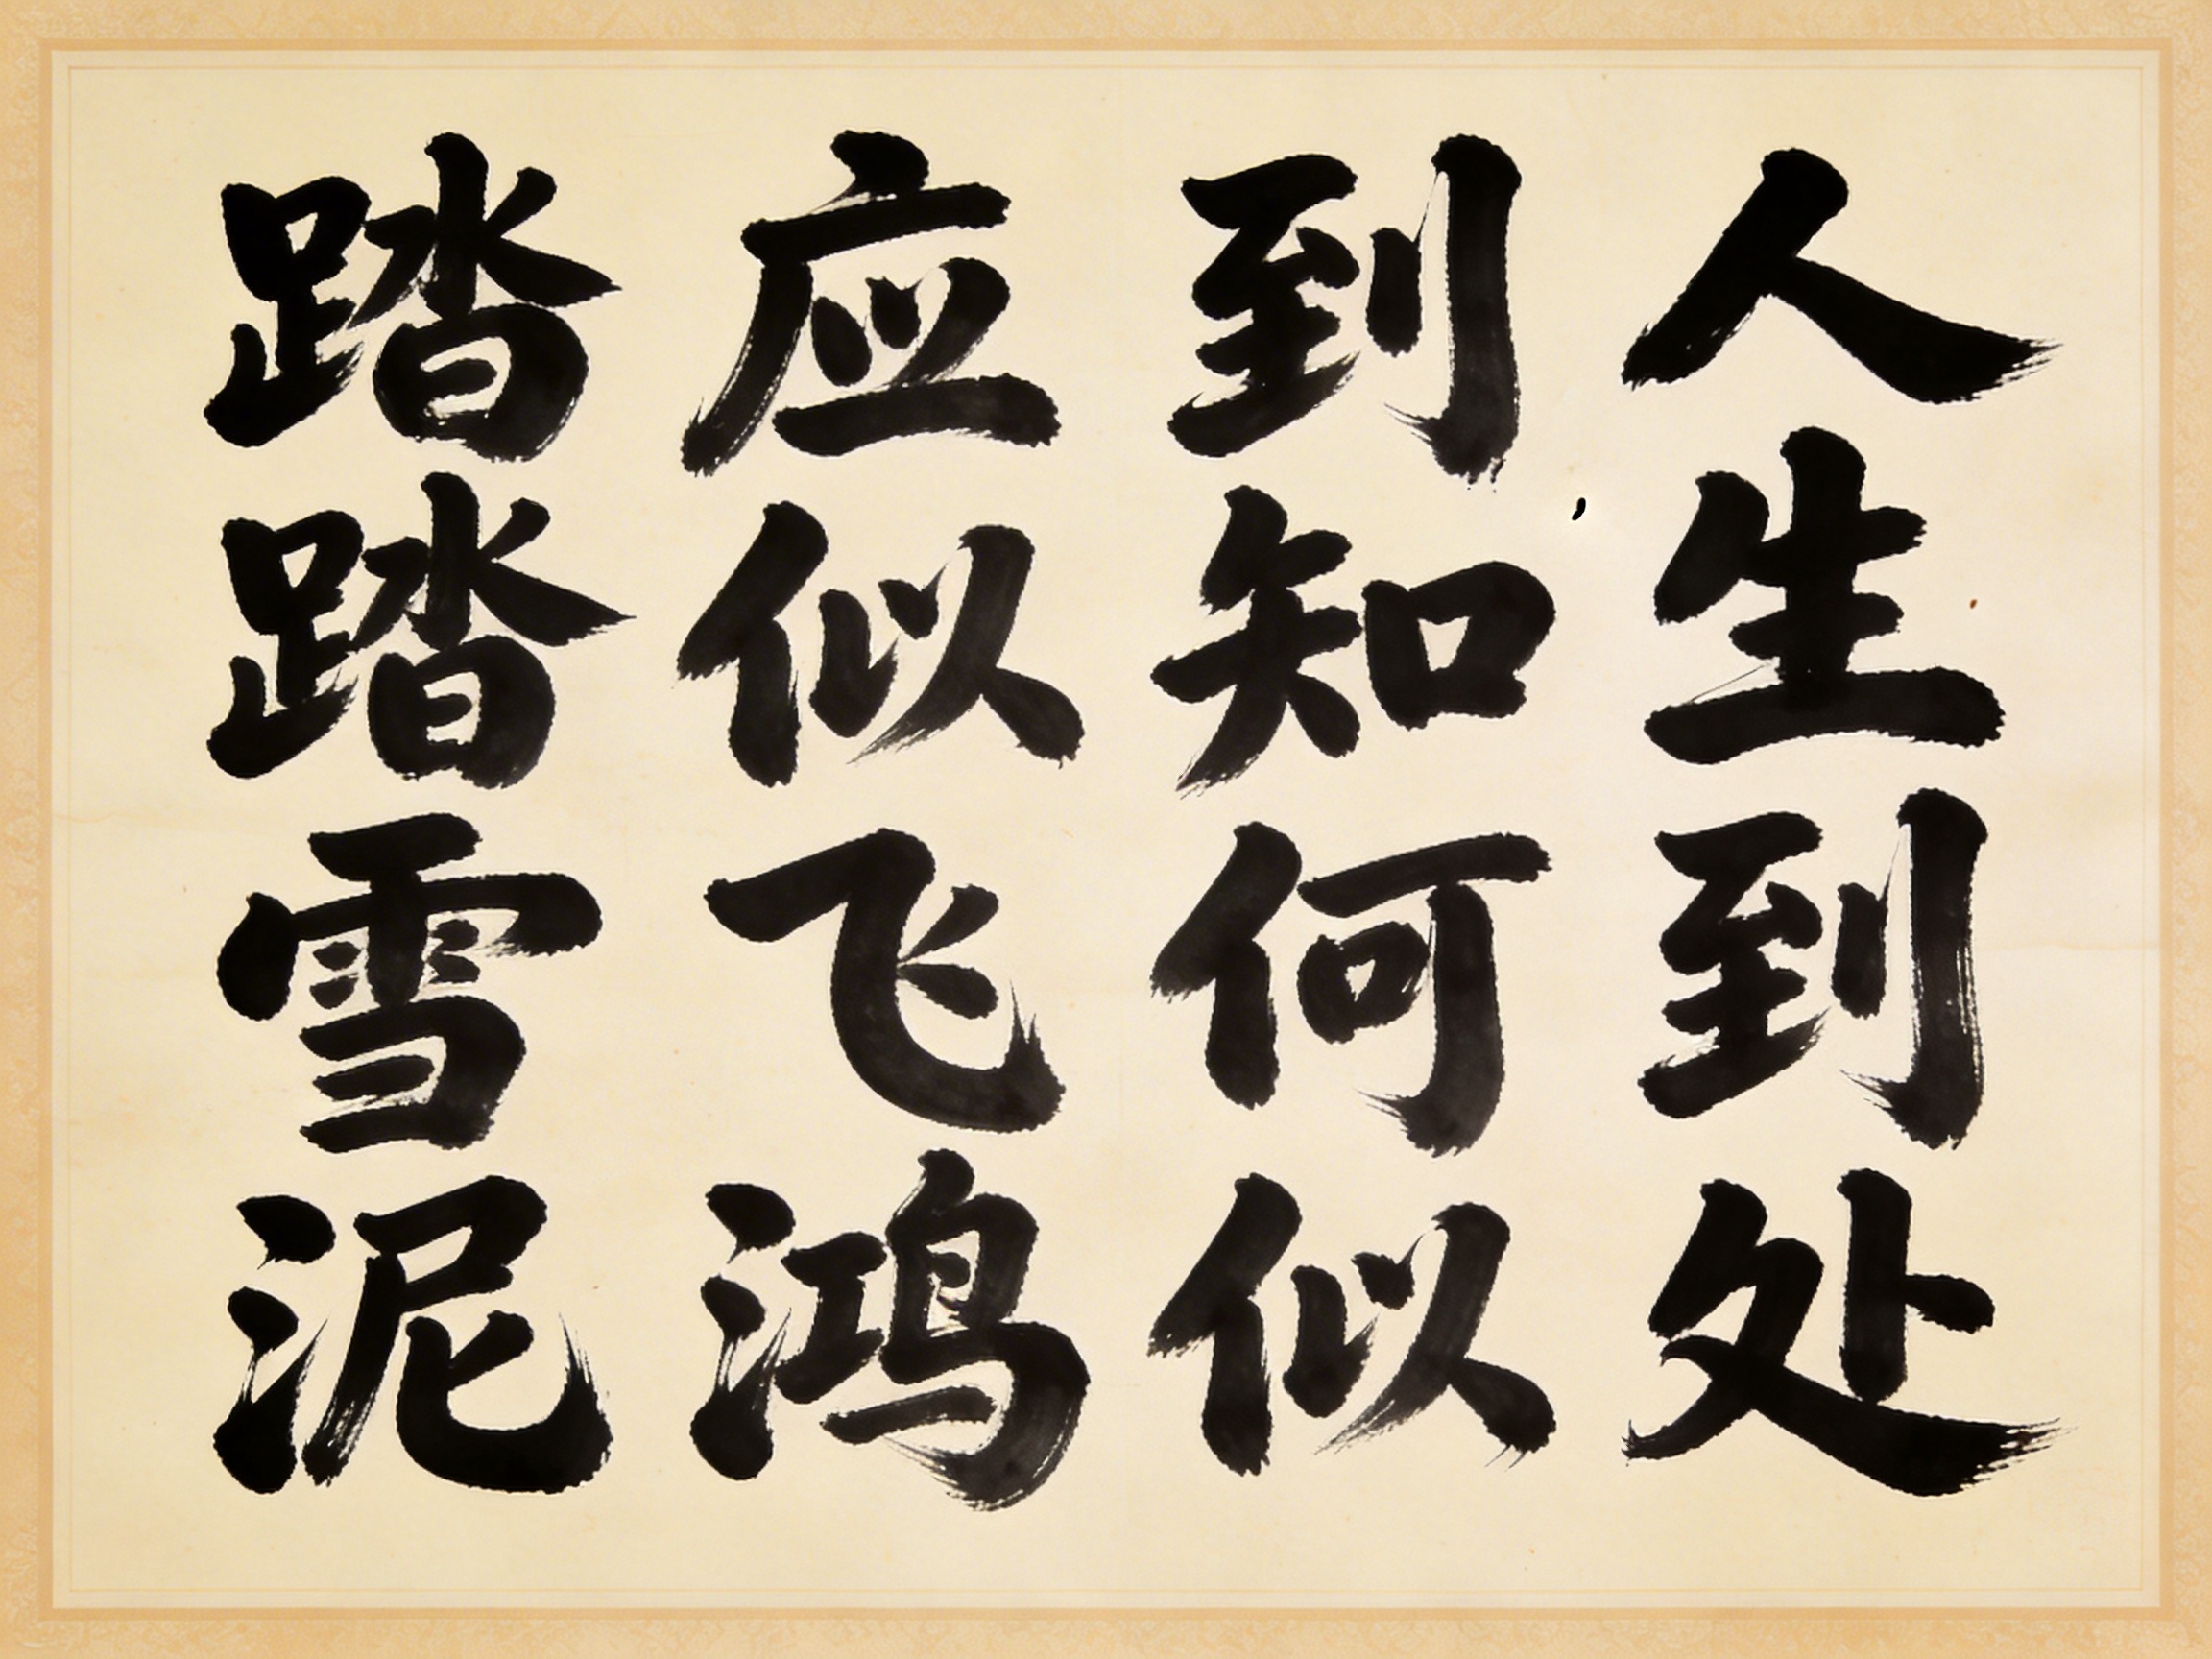 人生到处
到知何似
应似飞鸿
踏踏雪泥